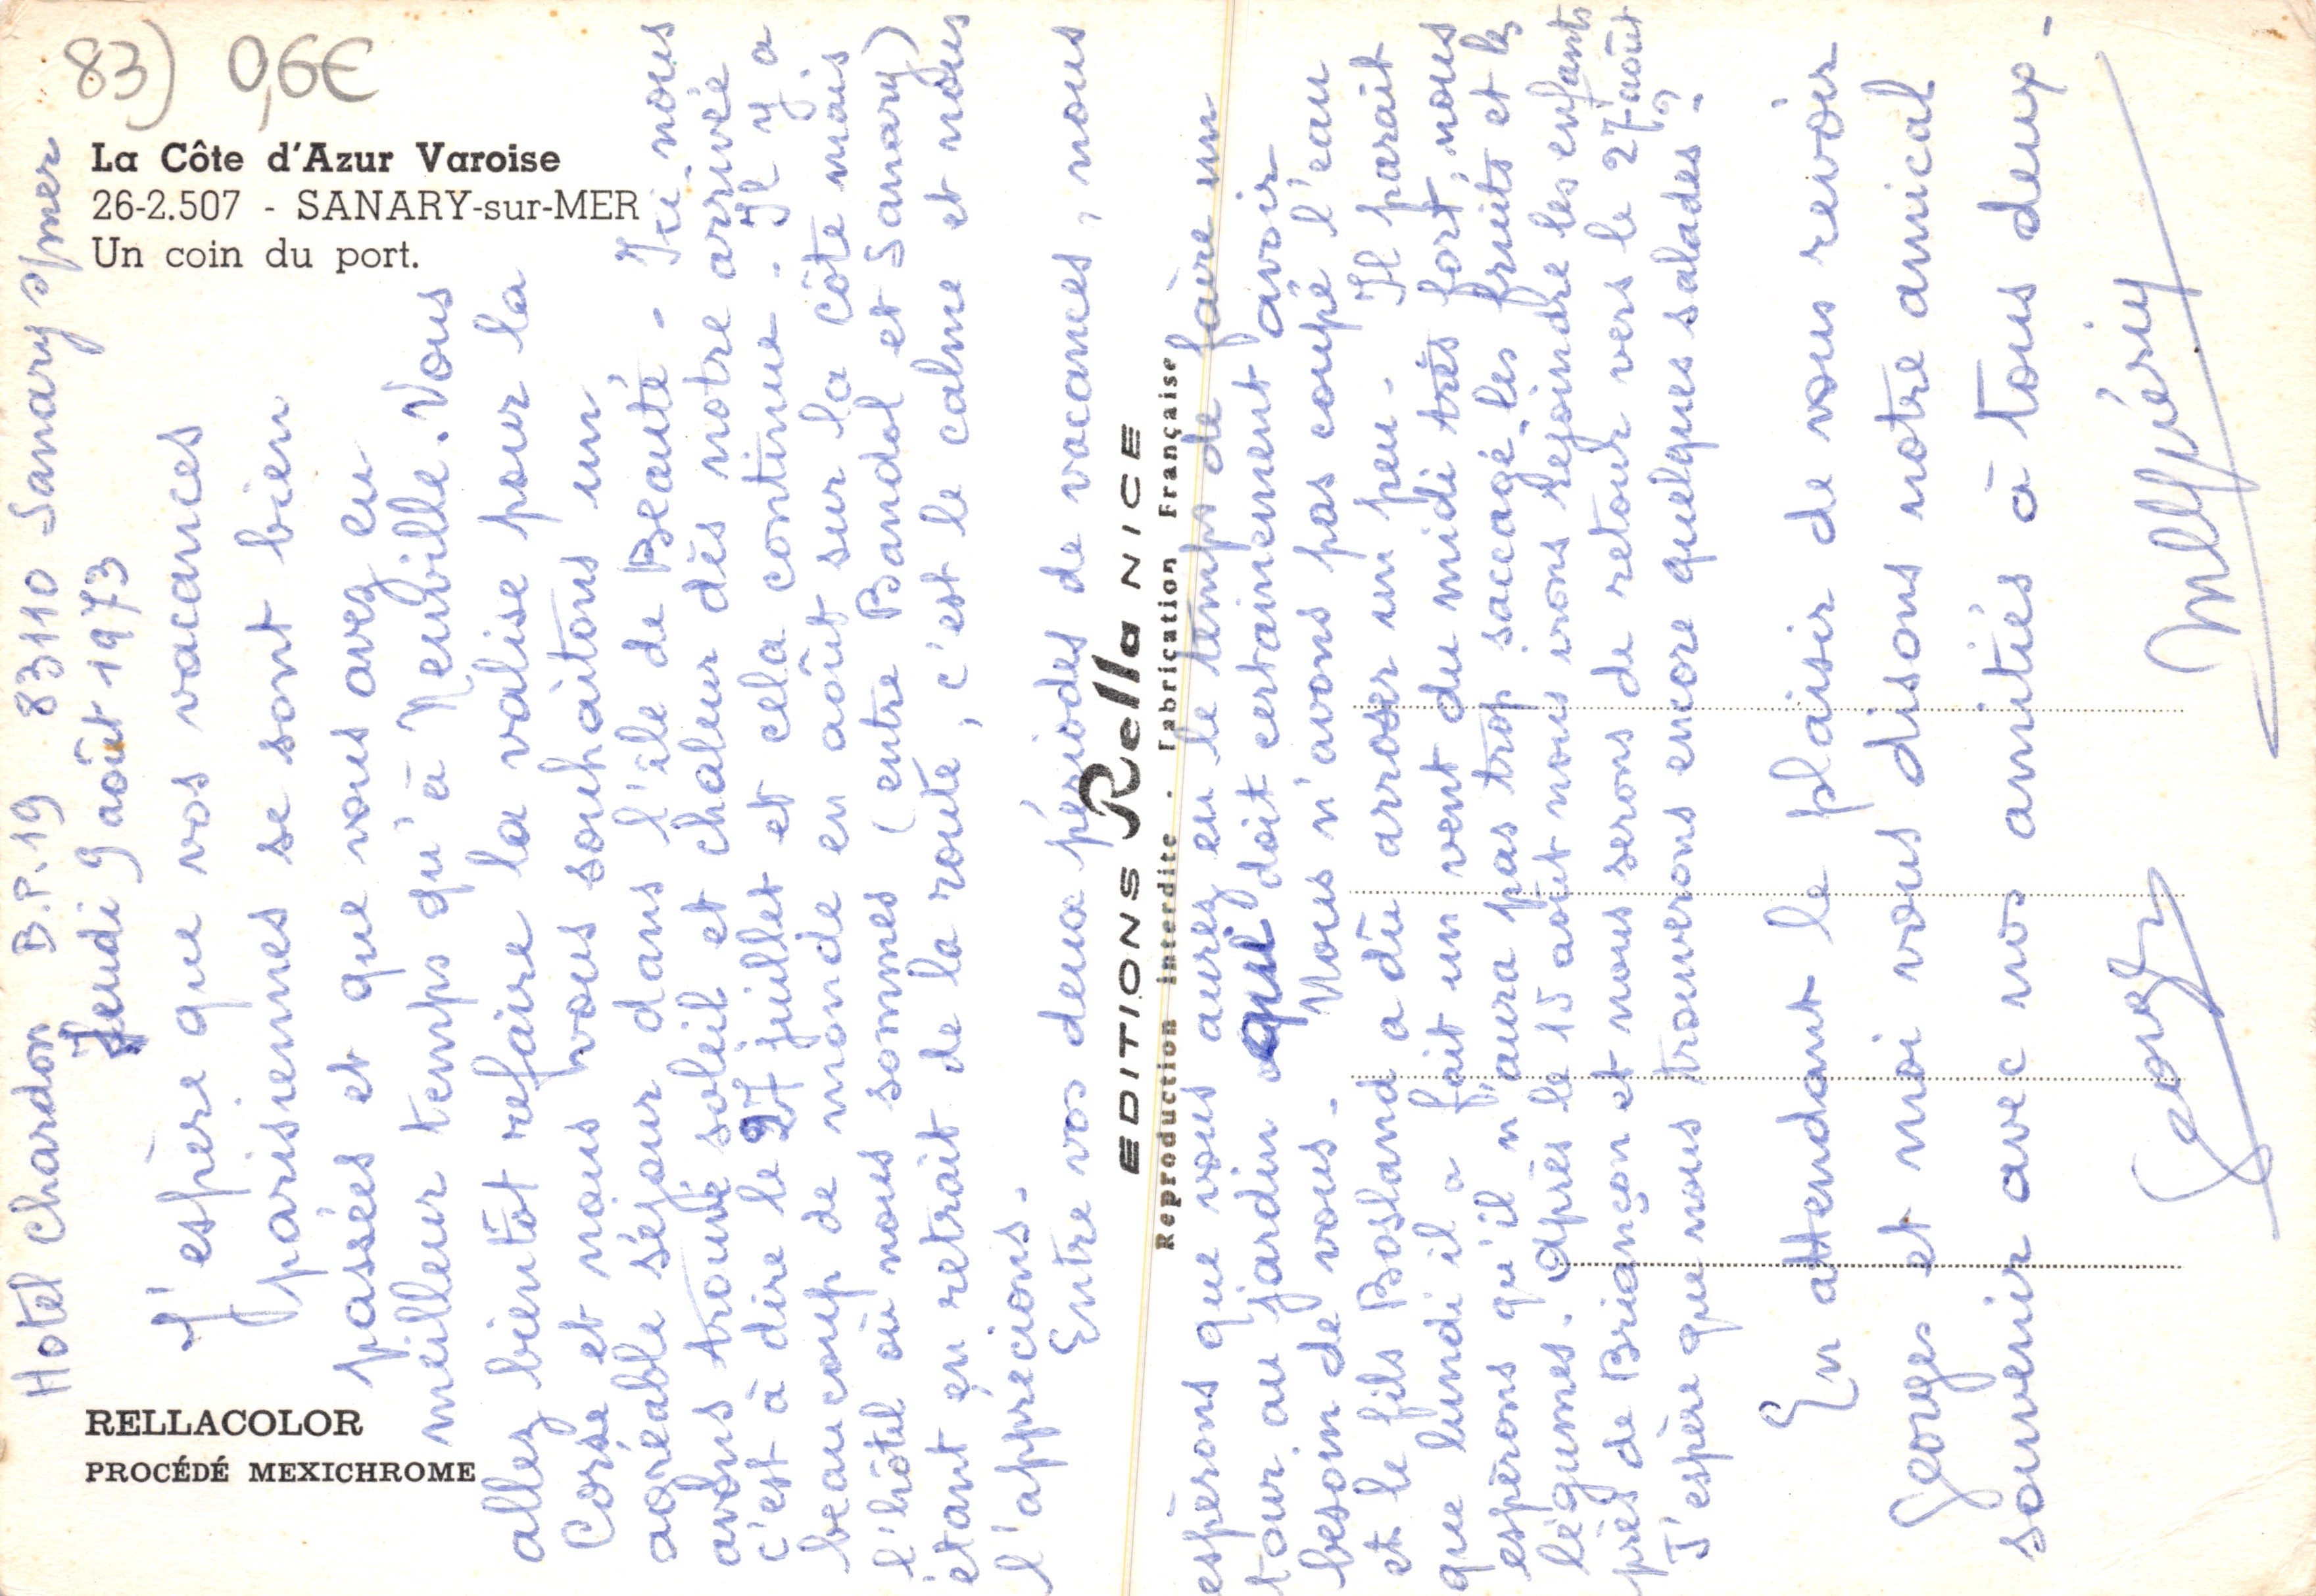 83) 0,6€
La Côte d'Azur Varoise
26-2.507 - SANARY-sur-MER
Un coin du port.
RELLACOLOR
PROCÉDÉ MEXICHROME
Hotel Chardon B.P.19 83110 Sanary s/mer
Jeudi 9 août 1973
J'espère que vos vacances
parisiennes se sont bien
passées et que vous avez eu
meilleur temps qu'à Neuville. Vous
allez bientôt refaire la valise pour la
Corse et nous vous souhaitons un
agréable séjour dans l'île de Beauté - Ici nous
avons trouvé soleil et chaleur dès notre arrivée
c'est à dire le 27 juillet et cela continue - Il y a
beaucoup de monde en août sur la côte mais
l'hôtel où nous sommes (entre Bandol et Sanary)
étant en retrait de la route, c'est le calme et nous
l'apprécions -
Entre vos deux périodes de vacances, nous
EDITIONS Rella NICE
Reproduction interdite - Fabrication Française
espérons que vous aurez eu le temps de faire un
tour au jardin qui doit certainement avoir
besoin de vous - Nous n'avons pas coupé l'eau
et le fils Bosland a dû arroser un peu - Il parait
que lundi il a fait un vent du midi très fort, nous
espérons qu'il n'aura pas trop saccagé les fruits et les
légumes. Après le 15 août nous irons rejoindre les enfants
près de Briançon et nous serons de retour vers le 27 août
J'espère que nous trouverons encore quelques salades ?
En attendant le plaisir de vous revoir
Georges et moi vous disons notre amical
souvenir avec nos amitiés à tous deux -